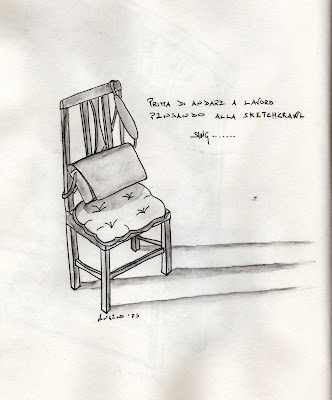 PRIMA DI ANDARE A LAVORO
PENSANDO ALLA SKETCHCRAWL
SANG.......